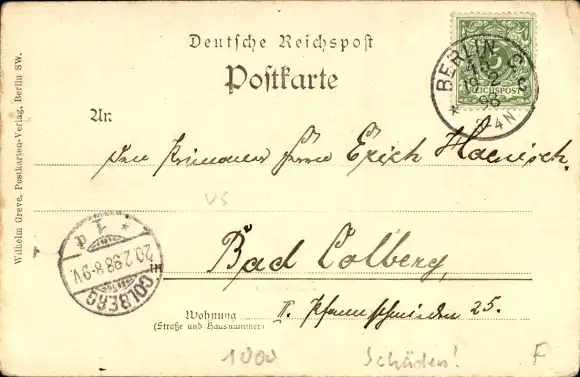 Deutsche Reichspost
Postkarte
BERLIN C 2
19 2
98
2-4N
REICHSPOST
An:
Den Primaner Herrn Erich Haenisch.
VS
Bad Colberg
in
COLBERG
20.2.98.8-9V.
* 1 d
Wohnung II. Pfannschmieden 25.
(Straße und Hausnummer)
1000 Schäden! F
Wilhelm Greve, Postkarten-Verlag, Berlin SW.